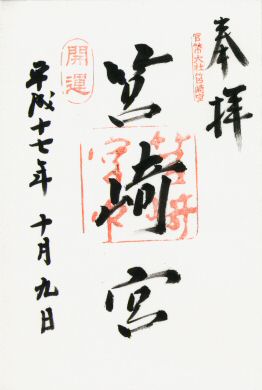 奉拝
官幣大社筥崎宮
筥崎宮
筥崎宮印
開運
平成十七年十月九日